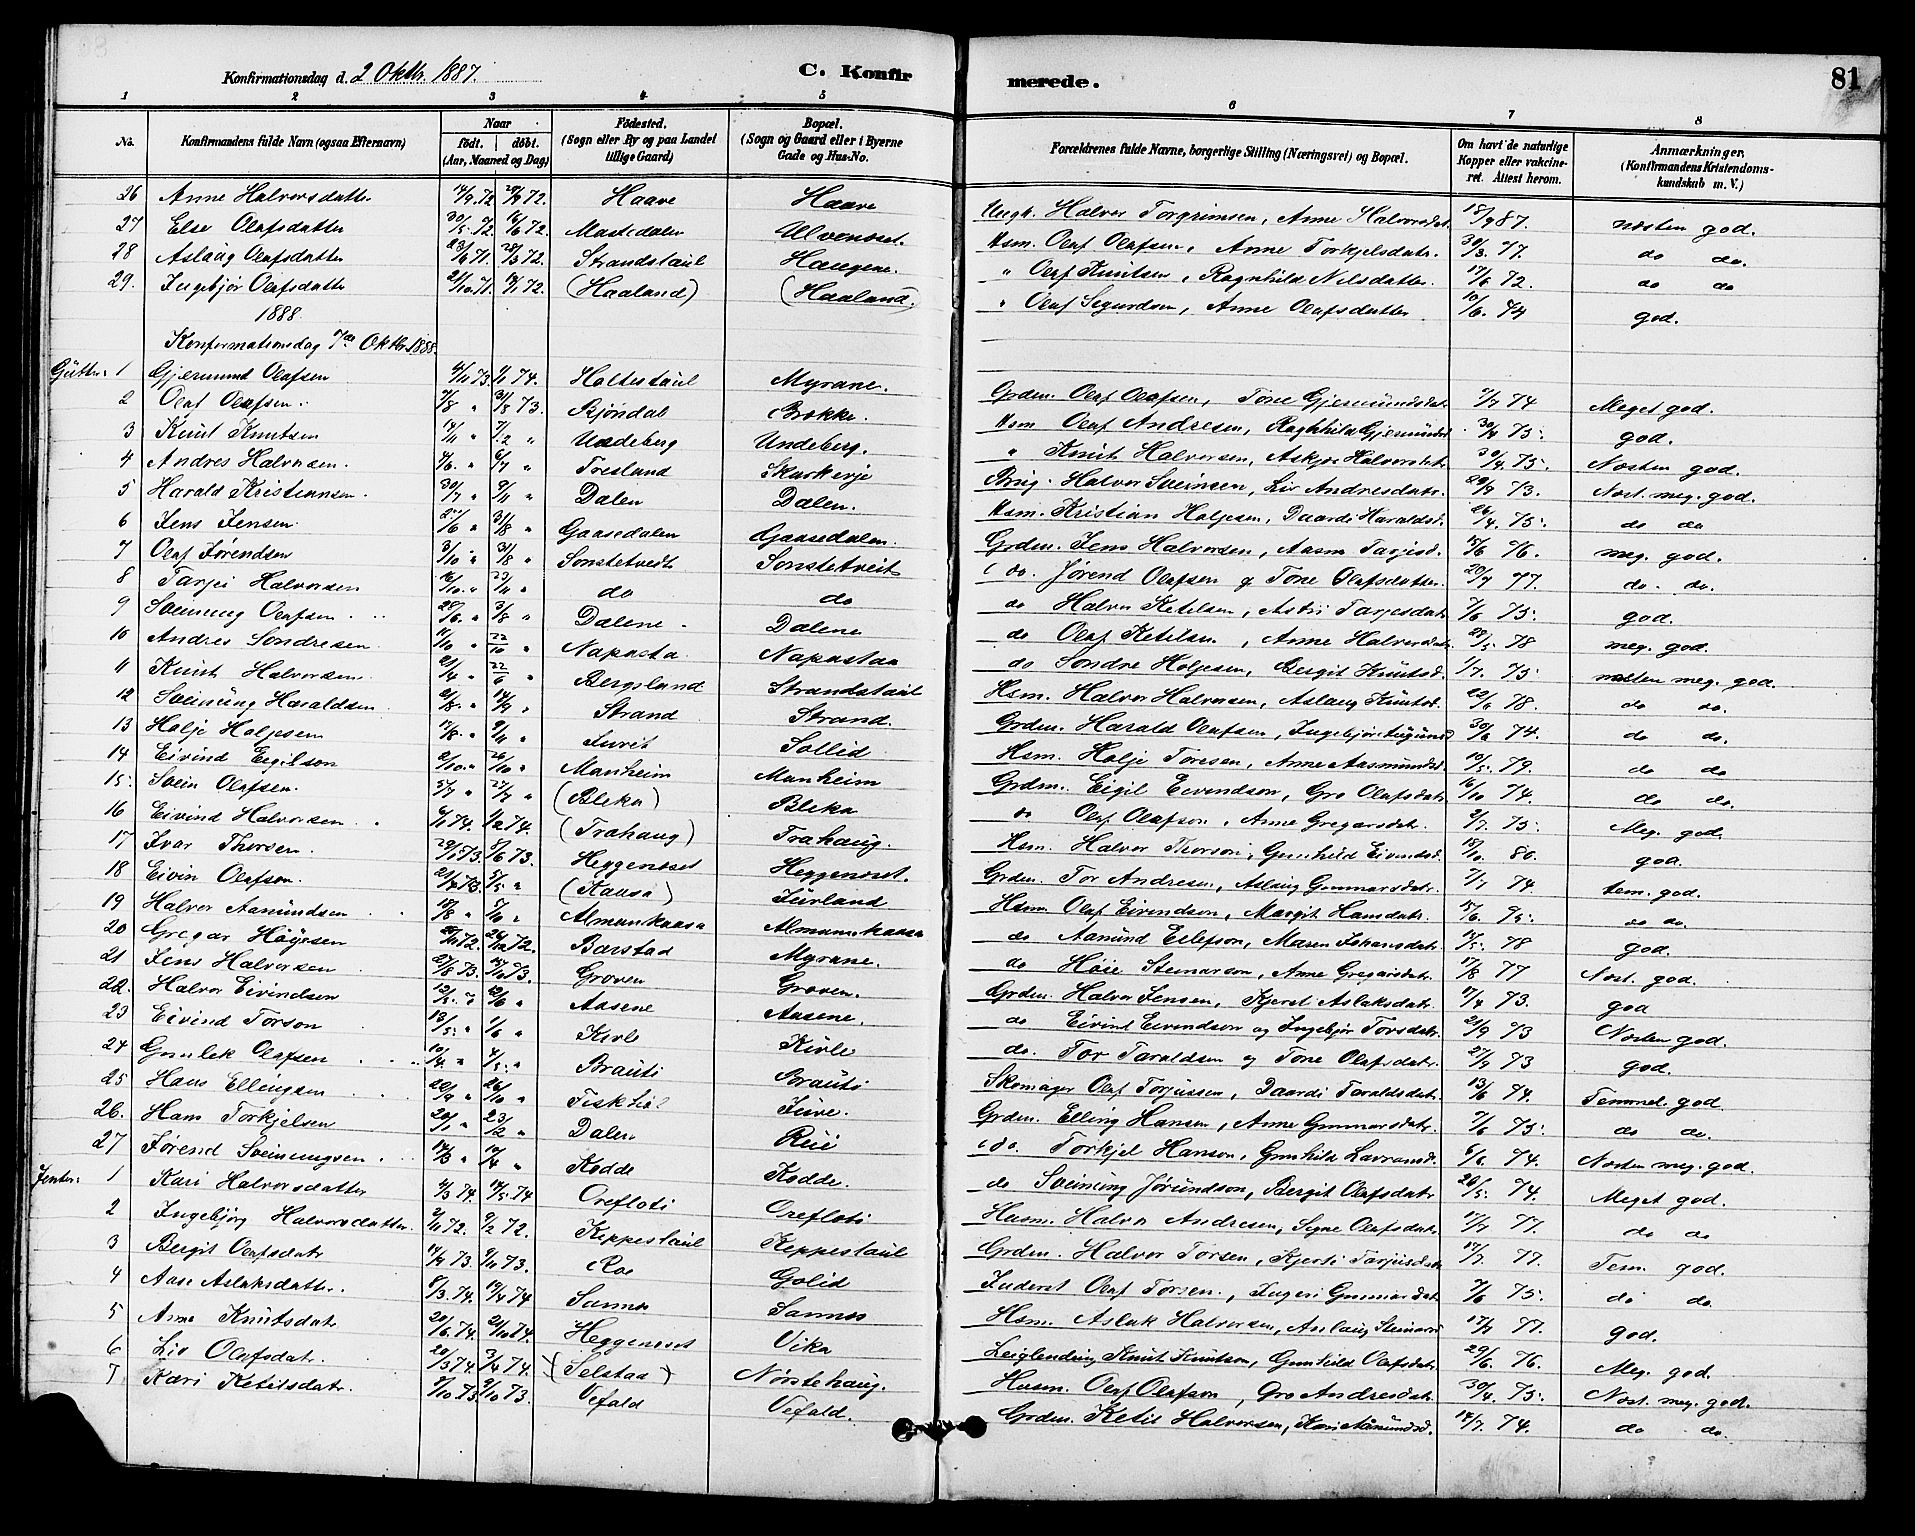 Konfirmationsdag d. 2 Oktbr. 1887.
C. Konfirmerede.
81
1 2 3 4 5 6 7 8
No.
Konfirmandens fulde Navn (ogsaa Efternavn)
Naar
födt. döbt.
(Aar, Maaned og Dag)
Födested.
(Sogn eller By og paa Landet tillige Gaard)
Bopæl.
(Sogn og Gaard eller i Byerne Gade og Hus-No.
Forældrenes fulde Navne, borgerlige Stilling (Næringsvei) og Bopæl.
Om havt de naturlige Kopper eller vakcineret. Attest herom.
Anmærkninger,
(Konfirmandens Kristendomskundskab m. V.)
26 Anne Halvorsdatter 14/9 72 29/9 72. Haave Haave Ungk. Halvor Torgrimsen, Anne Halvorsdat. 18/9 87. næsten god.
27 Else Olafsdatter 30/5 72. 16/6 72. Mastedalen Ulvenöset. Hsm. Olaf Olafsen, Anne Torkjelsdatr. 30/3 77. do do.
28 Aslaug Olafsdatter 23/6 71. Strandstaul Haugene. " Olaf Knutsen, Ragnhild Nilsdatter. 17/6 72. do do
29. Ingebjør Olafsdattr 21/10 71. 72. (Haaland) (Haaland) " Olaf Sigurdsen, Anne Olafsdatter 10/6. 74 god.
1888.
Konfirmationsdag 7de Oktbr. 1888.
Gutter: 1 Gjermund Olafsen 4/11 73. 1/11 74. Haltestaul Myrane. Grdm. Olaf Olafsen, Tone Gjermundsdat. 9/7 74 Meget god.
2 Olaf Olafsen. 7/8 " 31/8 73. Rjöndal Brokke. Hsm Olaf Andresen, Ragnhild Gjermunds 30/4 75. god.
3 Knut Knutsen 14/11 " 7/2 " Undeberg Undeberg. " Knut Halvorsen, Askjer Halvorsdtr. 30/4 75. Næsten god.
4 Andres Halvorsen. 4/6. " 6/7 " Tresland Skarkerje Brug. Halvor Sveinsen, Liv Andresdatr. 29/9 73. Næst. meg. god.
5 Harald Kristiansen. 30/7 " 9/11 " Dalen Dalen. Hsm. Kristian Holjesen, Daardi Haraldsd. 26/4. 75. do do
6 Jens Jensen. 31/8 " Gaasedalen Gaasedalen. Grdm. Jens Halvorsen, Aasne Tarjeisd. 15/6 76. meg. god.
7 Olaf Jørendsen 3/10 " 31/8 " Sønstetvedt Sønstetveit do. Jørend Olafsen g Tone Olafsdatter. 20/7 77. do. do.
8 Tarjei Halvorsen 16/10. " 23/11 " do do do Halvor Ketelsen, Astri Tarjesdat 7/6 75. god.
9 Sveinung Olafsen. 28/6. " 3/8 " Dalene. Dalene do Olaf Ketelsen, Anne Halvorsdtr. 28/5. 78 meg. god.
10 Andres Sondresen. 11/10 " 22/10 " Napasta. Napastaa do Sondre Holjesen, Bergit Knutsd. 1/7. 75. næsten meg. god.
11 Knut Halvorsen. 21/4 " 22/6 " Bergsland Strandstaul Hsm. Halvor Halvorsen, Aslaug Knutsd. 22/6 78. do do.
12 Sveinung Haraldsen. 2/8. " 14/9 " Strand Strand. Grdm. Harald Olafsen, Ingebjør 30/6 74. do do.
13 Holje Holjesen 17/8. " 9/11 " Juvet Sollid Hsm. Holje Toresen, Anne Aasmundsd. 10/5. 79. do do
14 Eivind Eigilson 2/10. " 26/10 " Manheim Manheim Grdm. Eigil Eivendson, Gro Olafsdatr. 16/10 74. do do.
15. Svein Olafsen. 5/7 " 27/7 " (Bleka) Bleka do Olaf Olafson, Anne Gregarsdatr. 2/7. 75. Meg. god.
16 Eivind Halvorsen. 6/1 74. 1/2 74. (Trahaug) Trahaug. Hsm. Halvor Thorson, Gunhild Eivindsd. 18/10. 80. god.
17 Ivar Thorsen. 73. 8/6 73. Heggenøset Heggenøset. Grdm. Tor Andresen, Aslaug Gunnarsdatr. 7/7 74 tem. god.
18 Eivin Olafson. 73. 5/5. " (Kaasa) Jurland Hsm. Olaf Eivendson, Margit Hansdatr. 15/6. 75. do do.
19 Halvor Aamundsen 18/8 " 5/10 " Almankaasa Almankaasa do Aamund Ellefson, Maren Johansdatr. 78 god.
20 Gregar Høyesen 72. 72. Barstad Myrane. do Høie Steinarson, Anne Gregarsdatr. 17/8 77 Næst. god.
21 Jens Halvorsen 21/8 73. 73. Groven Groven. Grdm. Halvor Jensen, Kjerst Aslaksdatr. 17/4 73. god
22. Halvor Eivindsen 12/5. " 22/6 " Aasene Aasene. do Eivint Eivendson og Ingebjør Torsdatr. 21/9 73 Næsten god.
23 Eivind Torson 13/5. " 1/6 " Kivle Kivle do. Tor Taraldsen og Tone Olafsdatr. 27/9 73 god.
24 Gunlek Olafsen 10/4 " 4/5. " Brauti Brauti Skomager Olaf Torjussen, Daardi Taraldsdatr. 13/6 74. Temmel. god
25 Hans Ellingsen 20/9 " 26/10 " Fisklös Juve. Grdm. Elling Hansen, Anne Gunnarsdatr. 7/6 75. do do.
26. Hans Torkjelsen 20/1 " 23/2 " Dalen Rui do. Torkjel Hanson, Gunhild Lavransd. 6/6. 74. Næsten meg. god.
27 Jørend Sveinungsen. 14/3 " 14/4 " Kodde Kodde. do Sveinung Jørundson, Bergit Olafsdatr 26/5. 74. Meget god.
Jenter: 1 Kari Halvorsdatter 4/3 74. 14/5. 74 Orefloti Orefloti Husm. Halvor Andresen, Signe Olafsdatr. 17/7 77. do do
2 Ingebjørg Halvorsdatter. 2/11 72. 9/2 72. Keppestaul Keppestaul Grdm. Halvor Torsen, Kjersti Tarjeisdatr 17/7. 77. Tem. god.
3 Bergit Olafsdatr 14/9 73. 9/11 73. Roe Golid Inderst Olaf Torsen, Ingeri Gunnarsdatr. 7/6 75. do do.
4 Aase Aslaksdatter. 8/3. 74. 19/4 74 Sannes Sannes Hsm. Aslak Halvorsen, Aslaug Steinarsd 17/7 77. god.
5 Anne Knutsdatr 20/6. 74. 74. Heggenøset Vika Leiglending Knut Knutson, Gunhild Olafsdatr. 29/6. 76. Meg. god.
6 Liv Olafsdatr. 20/3 74. 3/4 74. (Selstaa) Nørstehaug. Husm. Olaf Olafson, Gro Andresdatr. 30/4. 75. Næst. meg. god.
7 Kari Ketilsdatr. 73. 73. Vefald Vefald. Grdm. Ketil Halvorsen, Kari Aamundsd. 14/7. 74. do do.